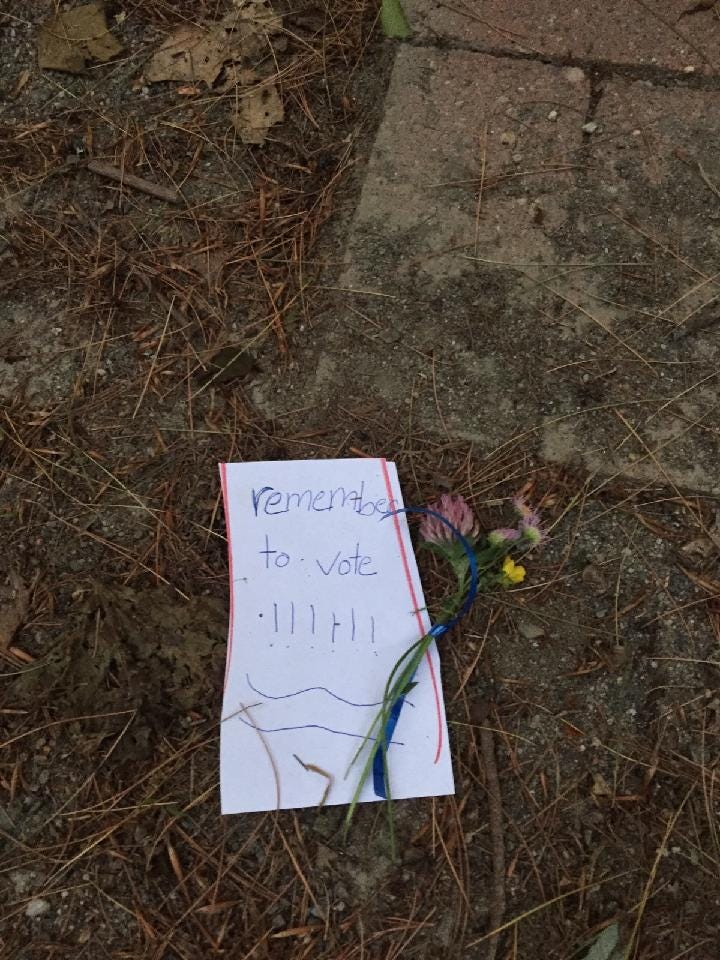 remember
to vote
!!!!!!